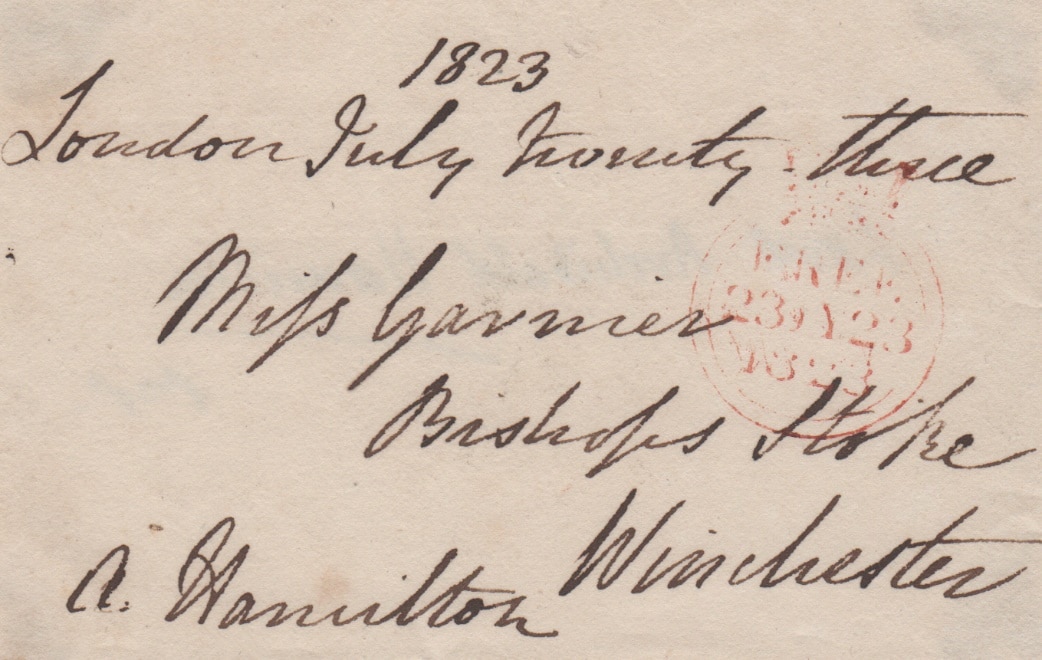 1823
London July twenty-three
Miſs Garnier
Bishops Stoke
Winchester
A. Hamilton
FREE
23 JY 23
1823